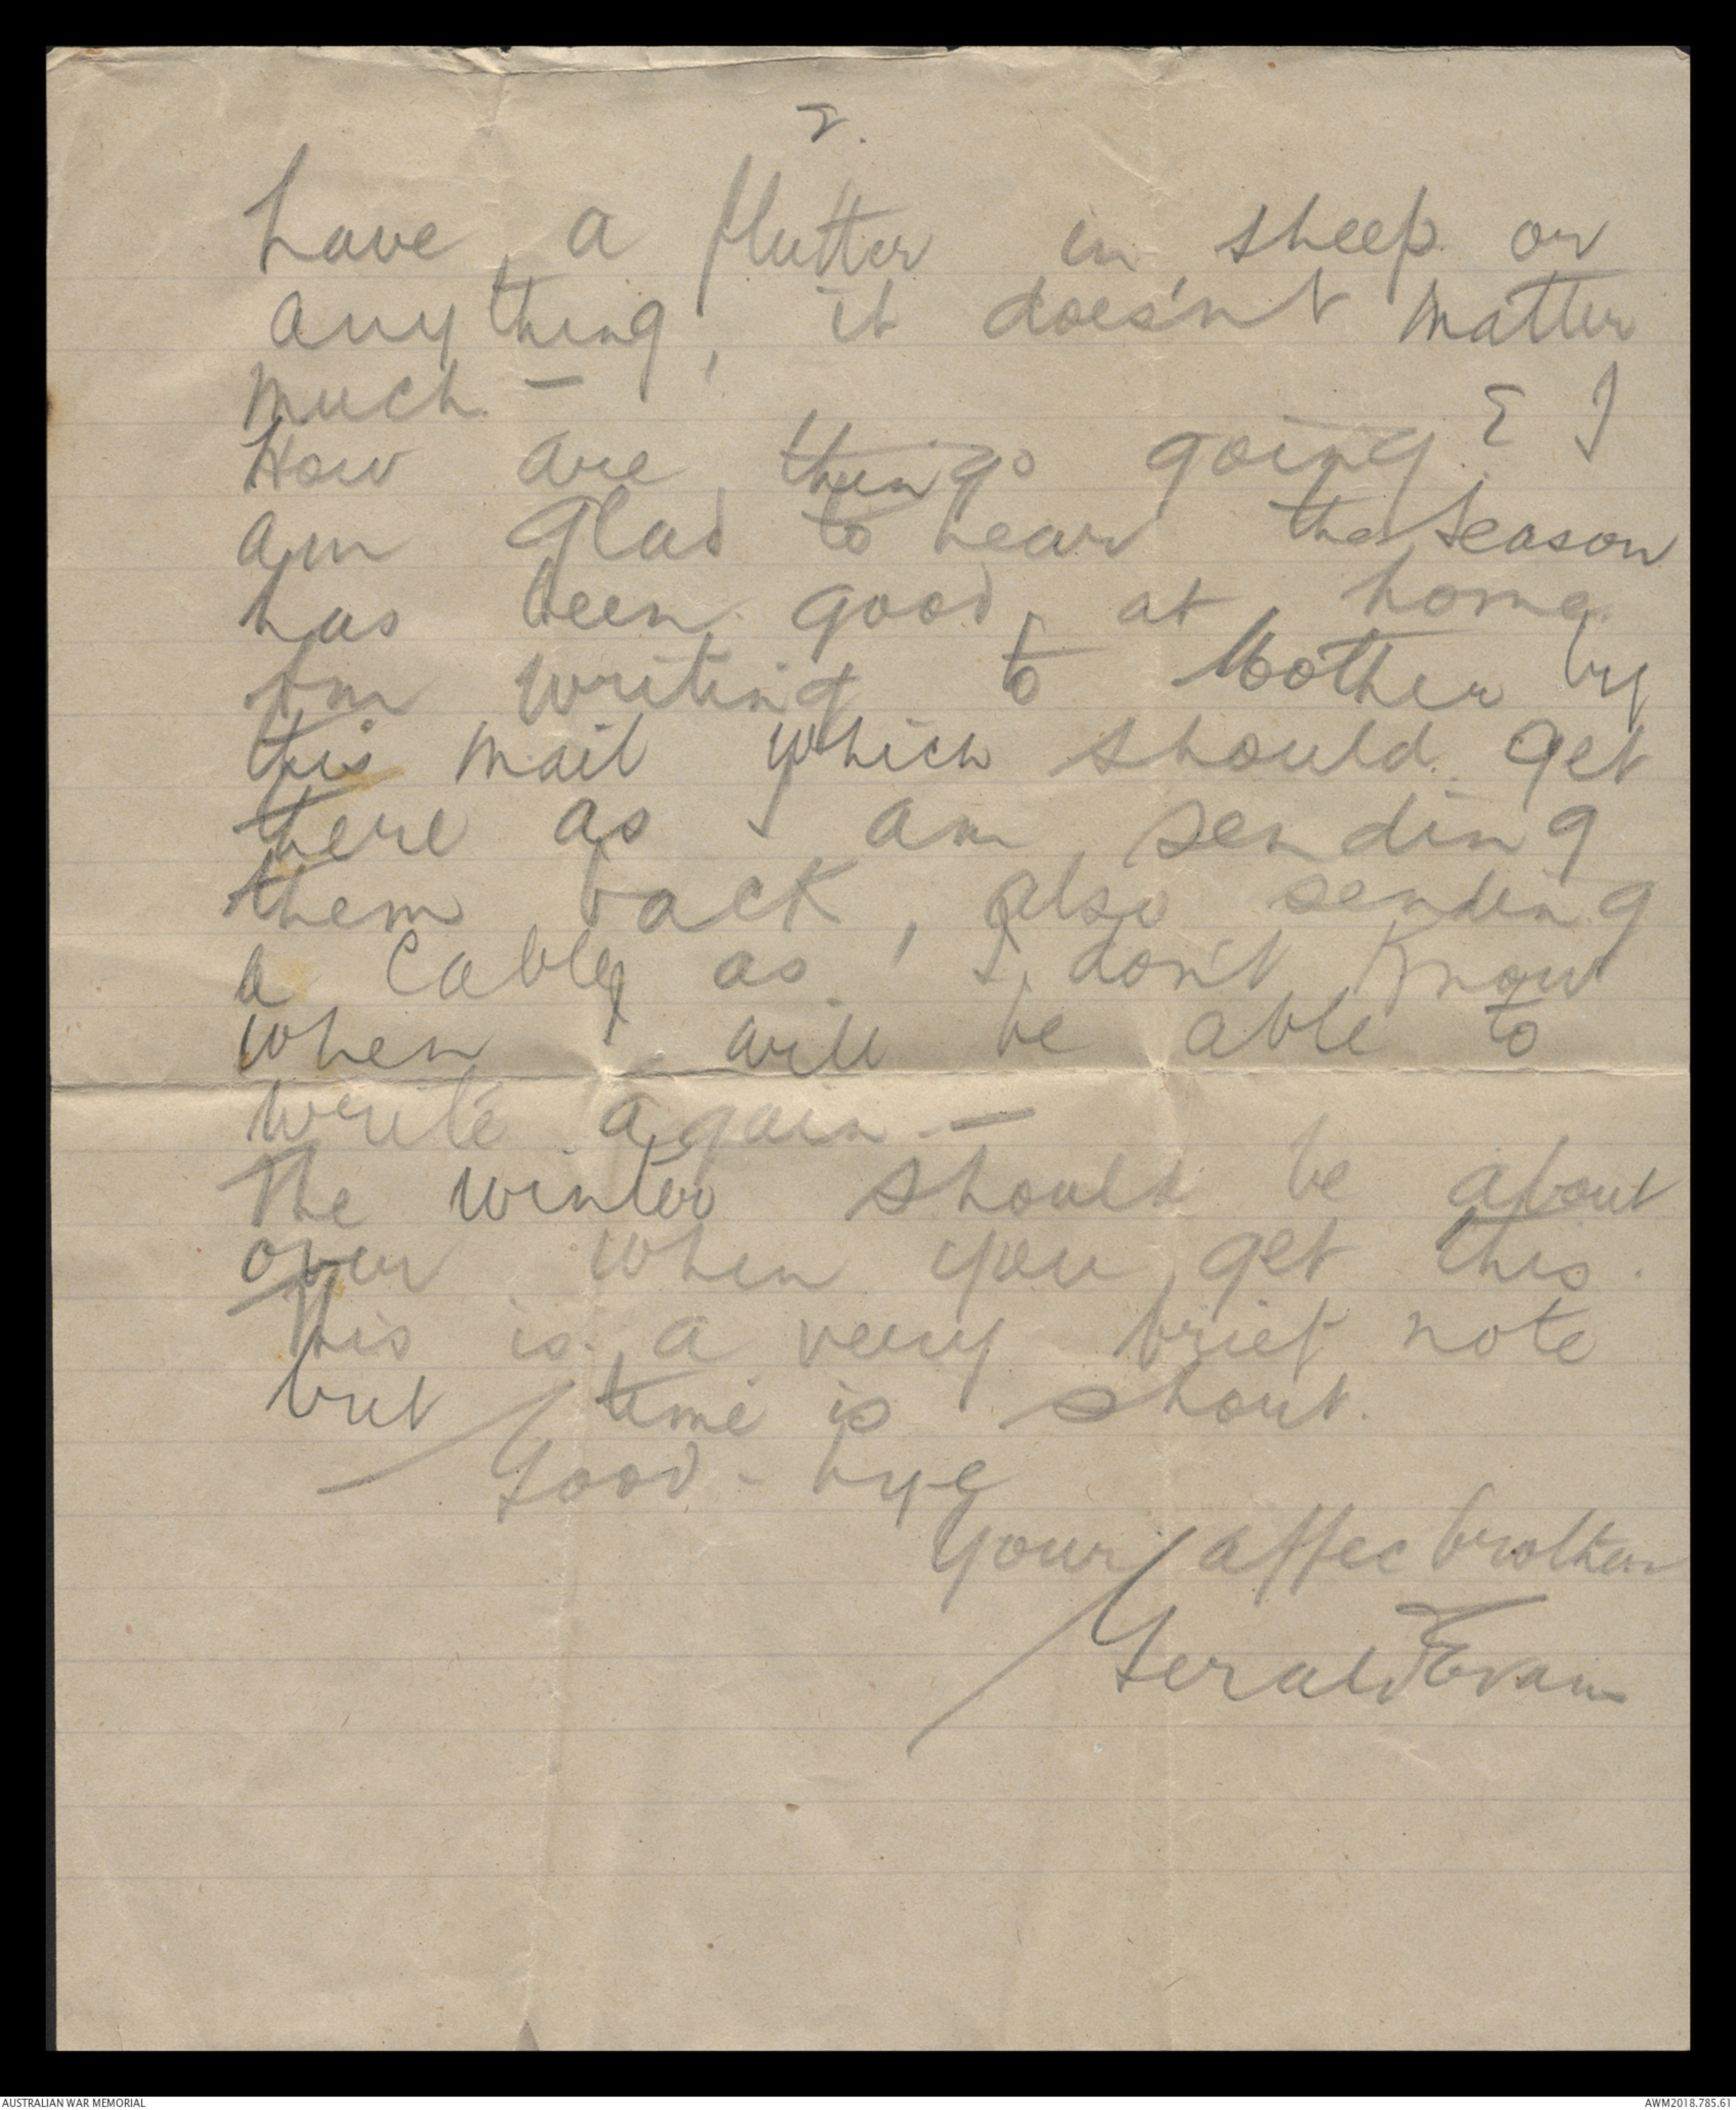 2.
have a flutter in sheep or
anything, it does'nt matter
much. —
How are things going? I
am glad to hear the season
has been good at home.
Am writing to Mother by
this mail which should get
there as I am sending
them back, also sending
a cable as I don't know
when I will be able to
write again. —
The winter should be about
over when you get this.
This is a very brief note
but time is short.
Good-bye
Your affec brother
Gerald Evans
AUSTRALIAN WAR MEMORIAL
AWM2018.785.61